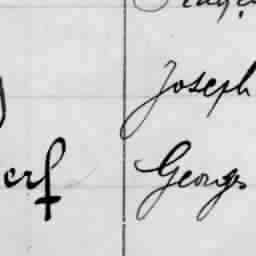 Joseph
erf Georges